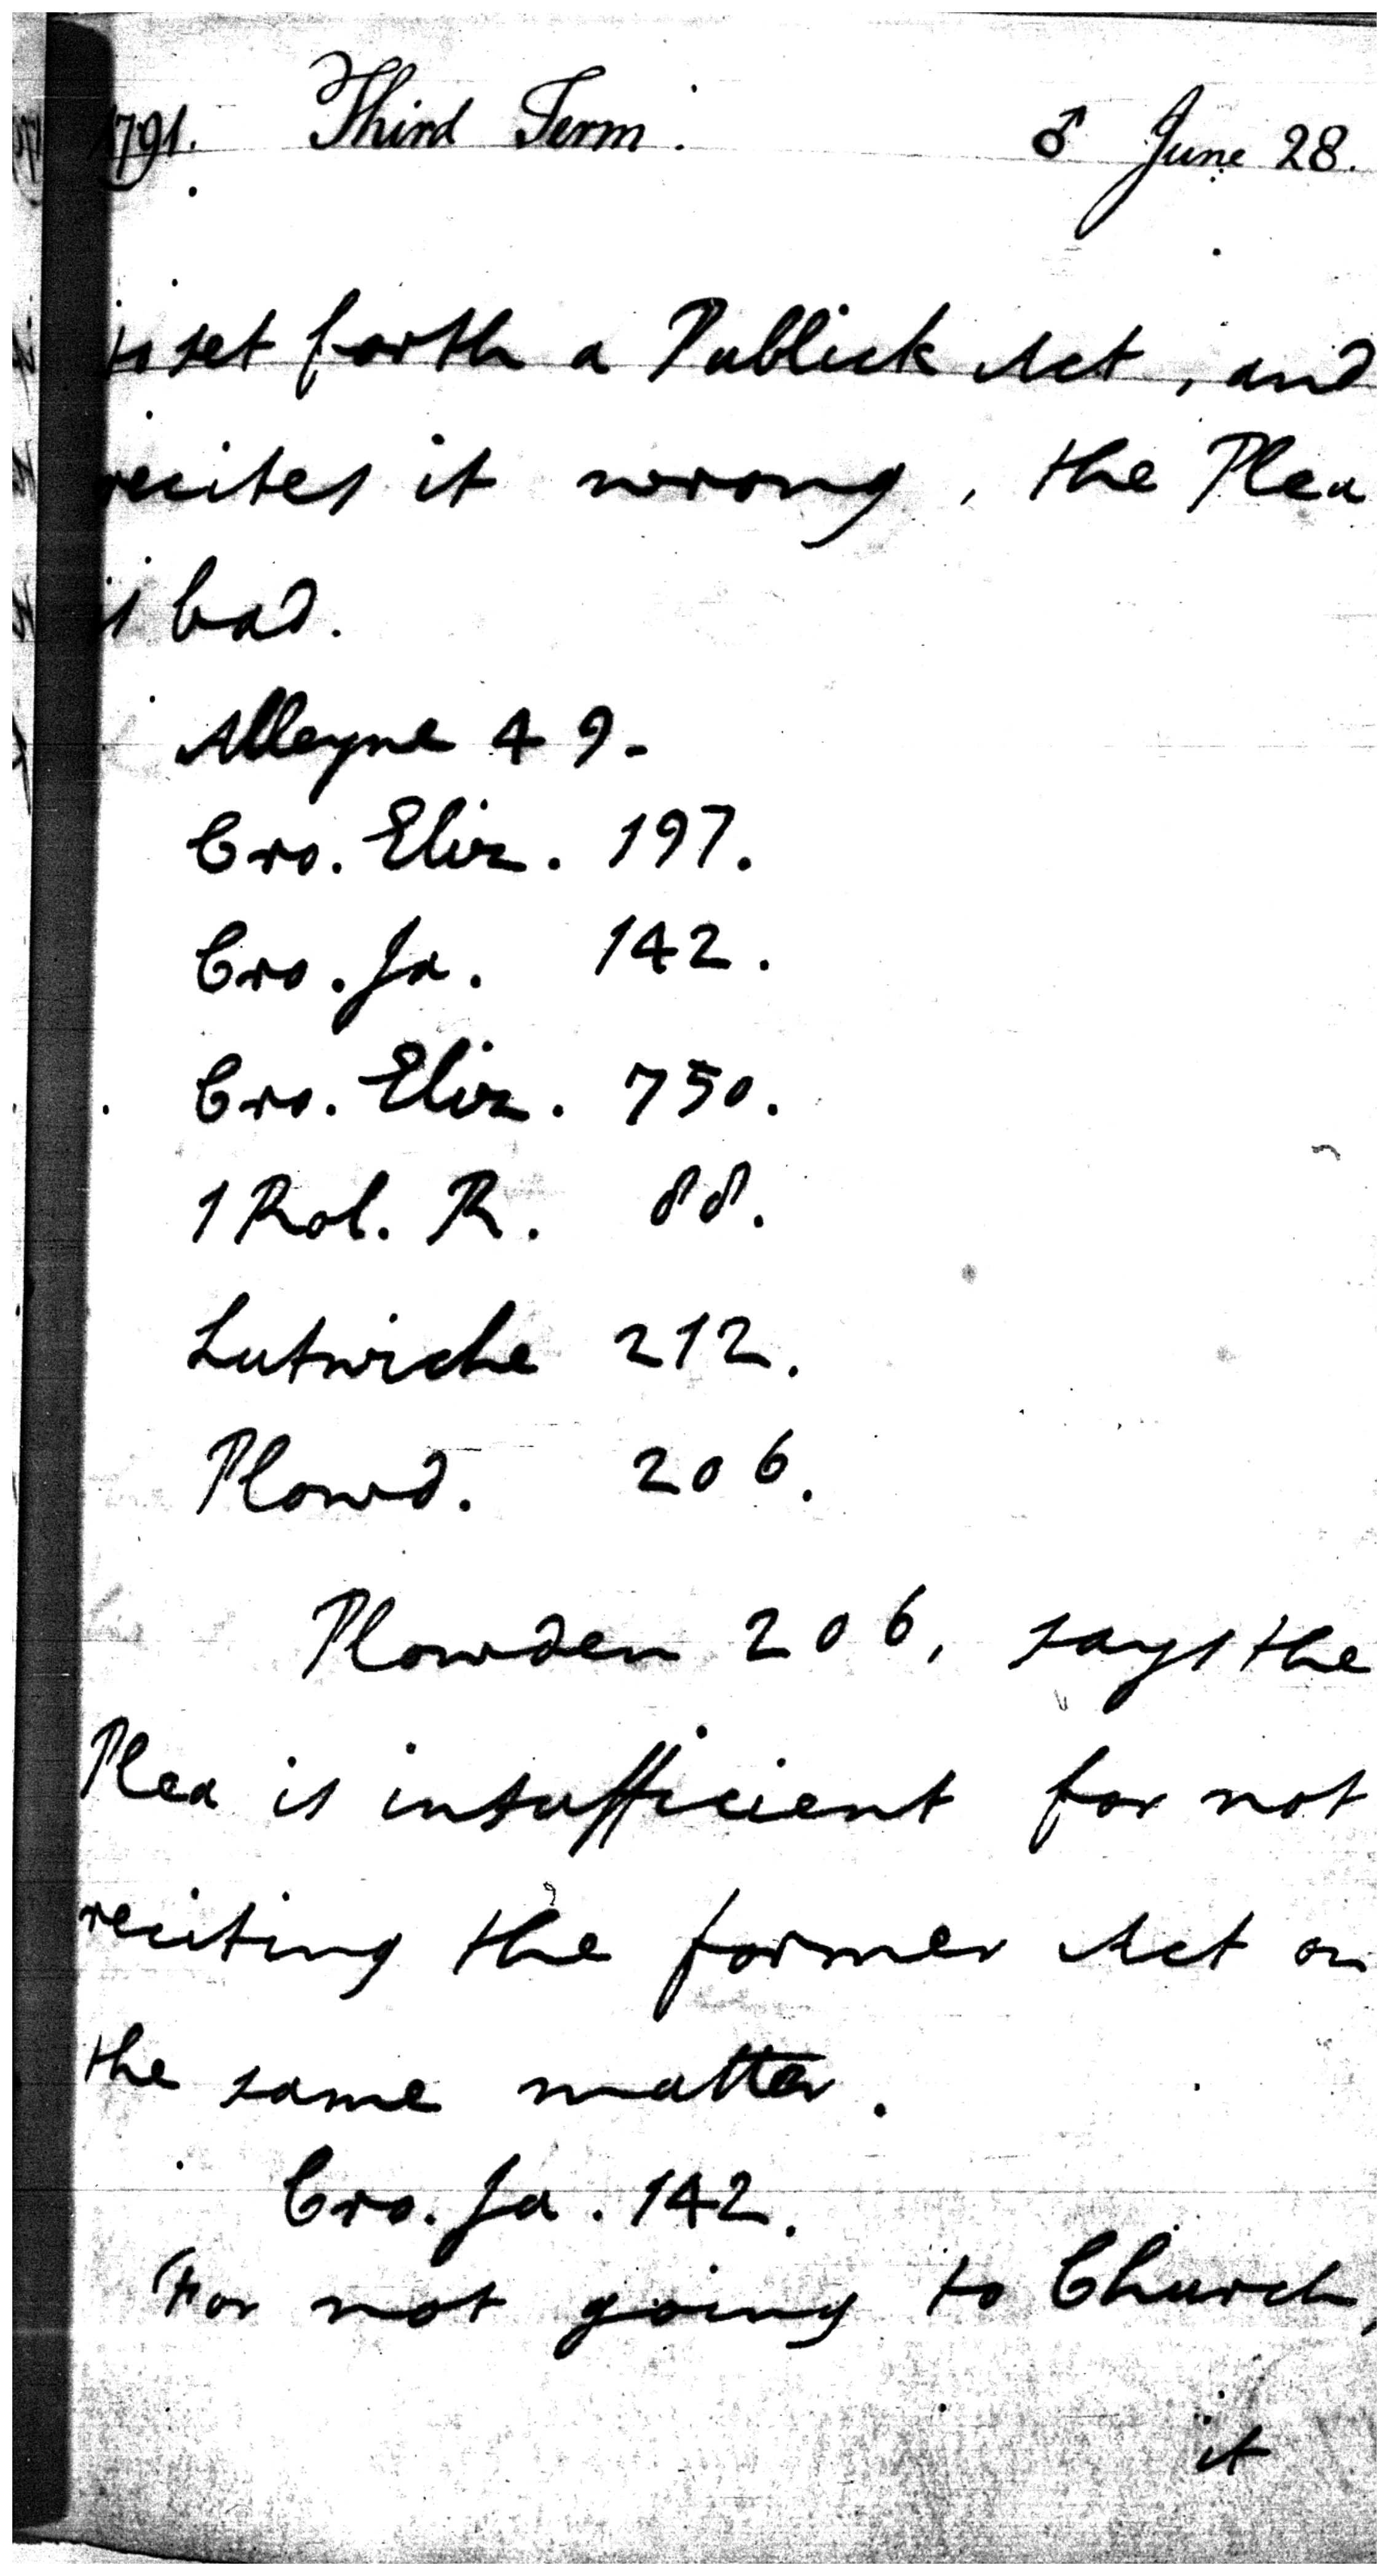 1791. Third Term. ♂ June 28.
to set forth a Publick Act, and
recites it wrong, the Plea
is bad.
Alleyne 49.
Cro. Eliz. 197.
Cro. Ja. 142.
Cro. Eliz. 750.
1 Rol. R. 88.
Lutwiche 212.
Plowd. 206.
Plowden 206, says the
Plea is insufficient for not
reciting the former Act on
the same matter.
Cro. Ja. 142.
For not going to Church,
it